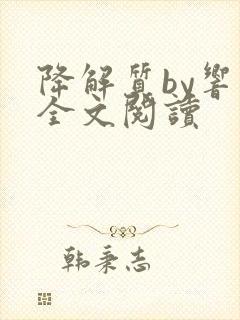 降解质by響
全文閱讀
韩秉志